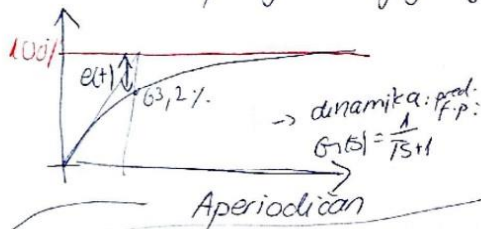 100%
e(t)
63,2%.
→ dinamika: pred. f.p:
Gn(s) = 1/TS+1
Aperiodičan